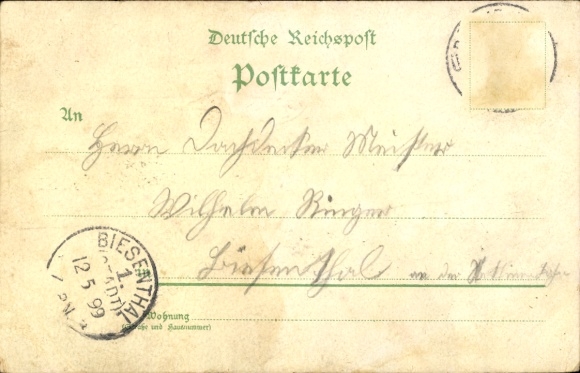 Deutsche Reichspost
Postkarte
An
Herrn Dachdecker Meister
Wilhelm Ringer
Biesenthal an der
Wohnung
(Straße und Hausnummer)
BIESENTHAL
1.
12.5.99